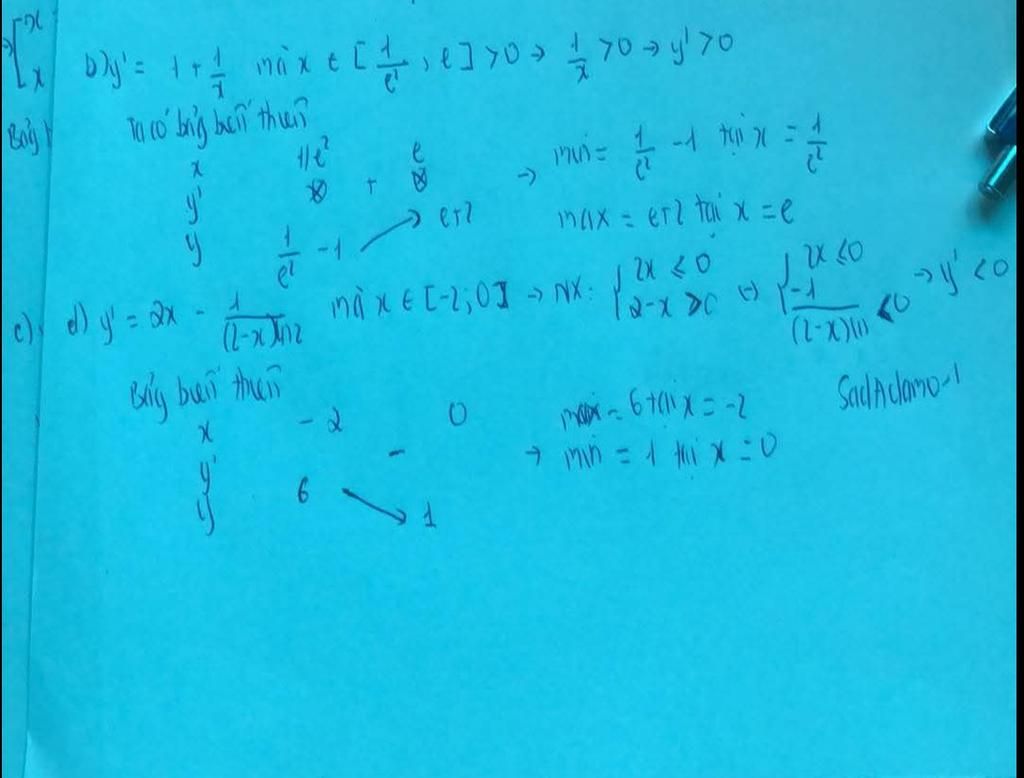 x
x
b) y' = 1 + 1/x mà x ∈ [1/e², e] > 0 → 1/x > 0 → y' > 0
Bảng
Ta có bảng biến thiên
x 1/e² e
y' +
y 1/e² - 1 → e+2
→ min = 1/e² - 1 tại x = 1/e²
max = e+2 tại x = e
c)
d) y' = 2x - 1/((2-x)ln2 mà x ∈ [-2; 0] → NX: { 2x ≤ 0 2-x > 0 ⇔ { 2x ≤ 0 -1/((2-x)ln < 0 → y' < 0
Bảng biến thiên
x -2 0
y' -
y 6 → 1
max = 6 tại x = -2
→ min = 1 tại x = 0
SadAdamo-1